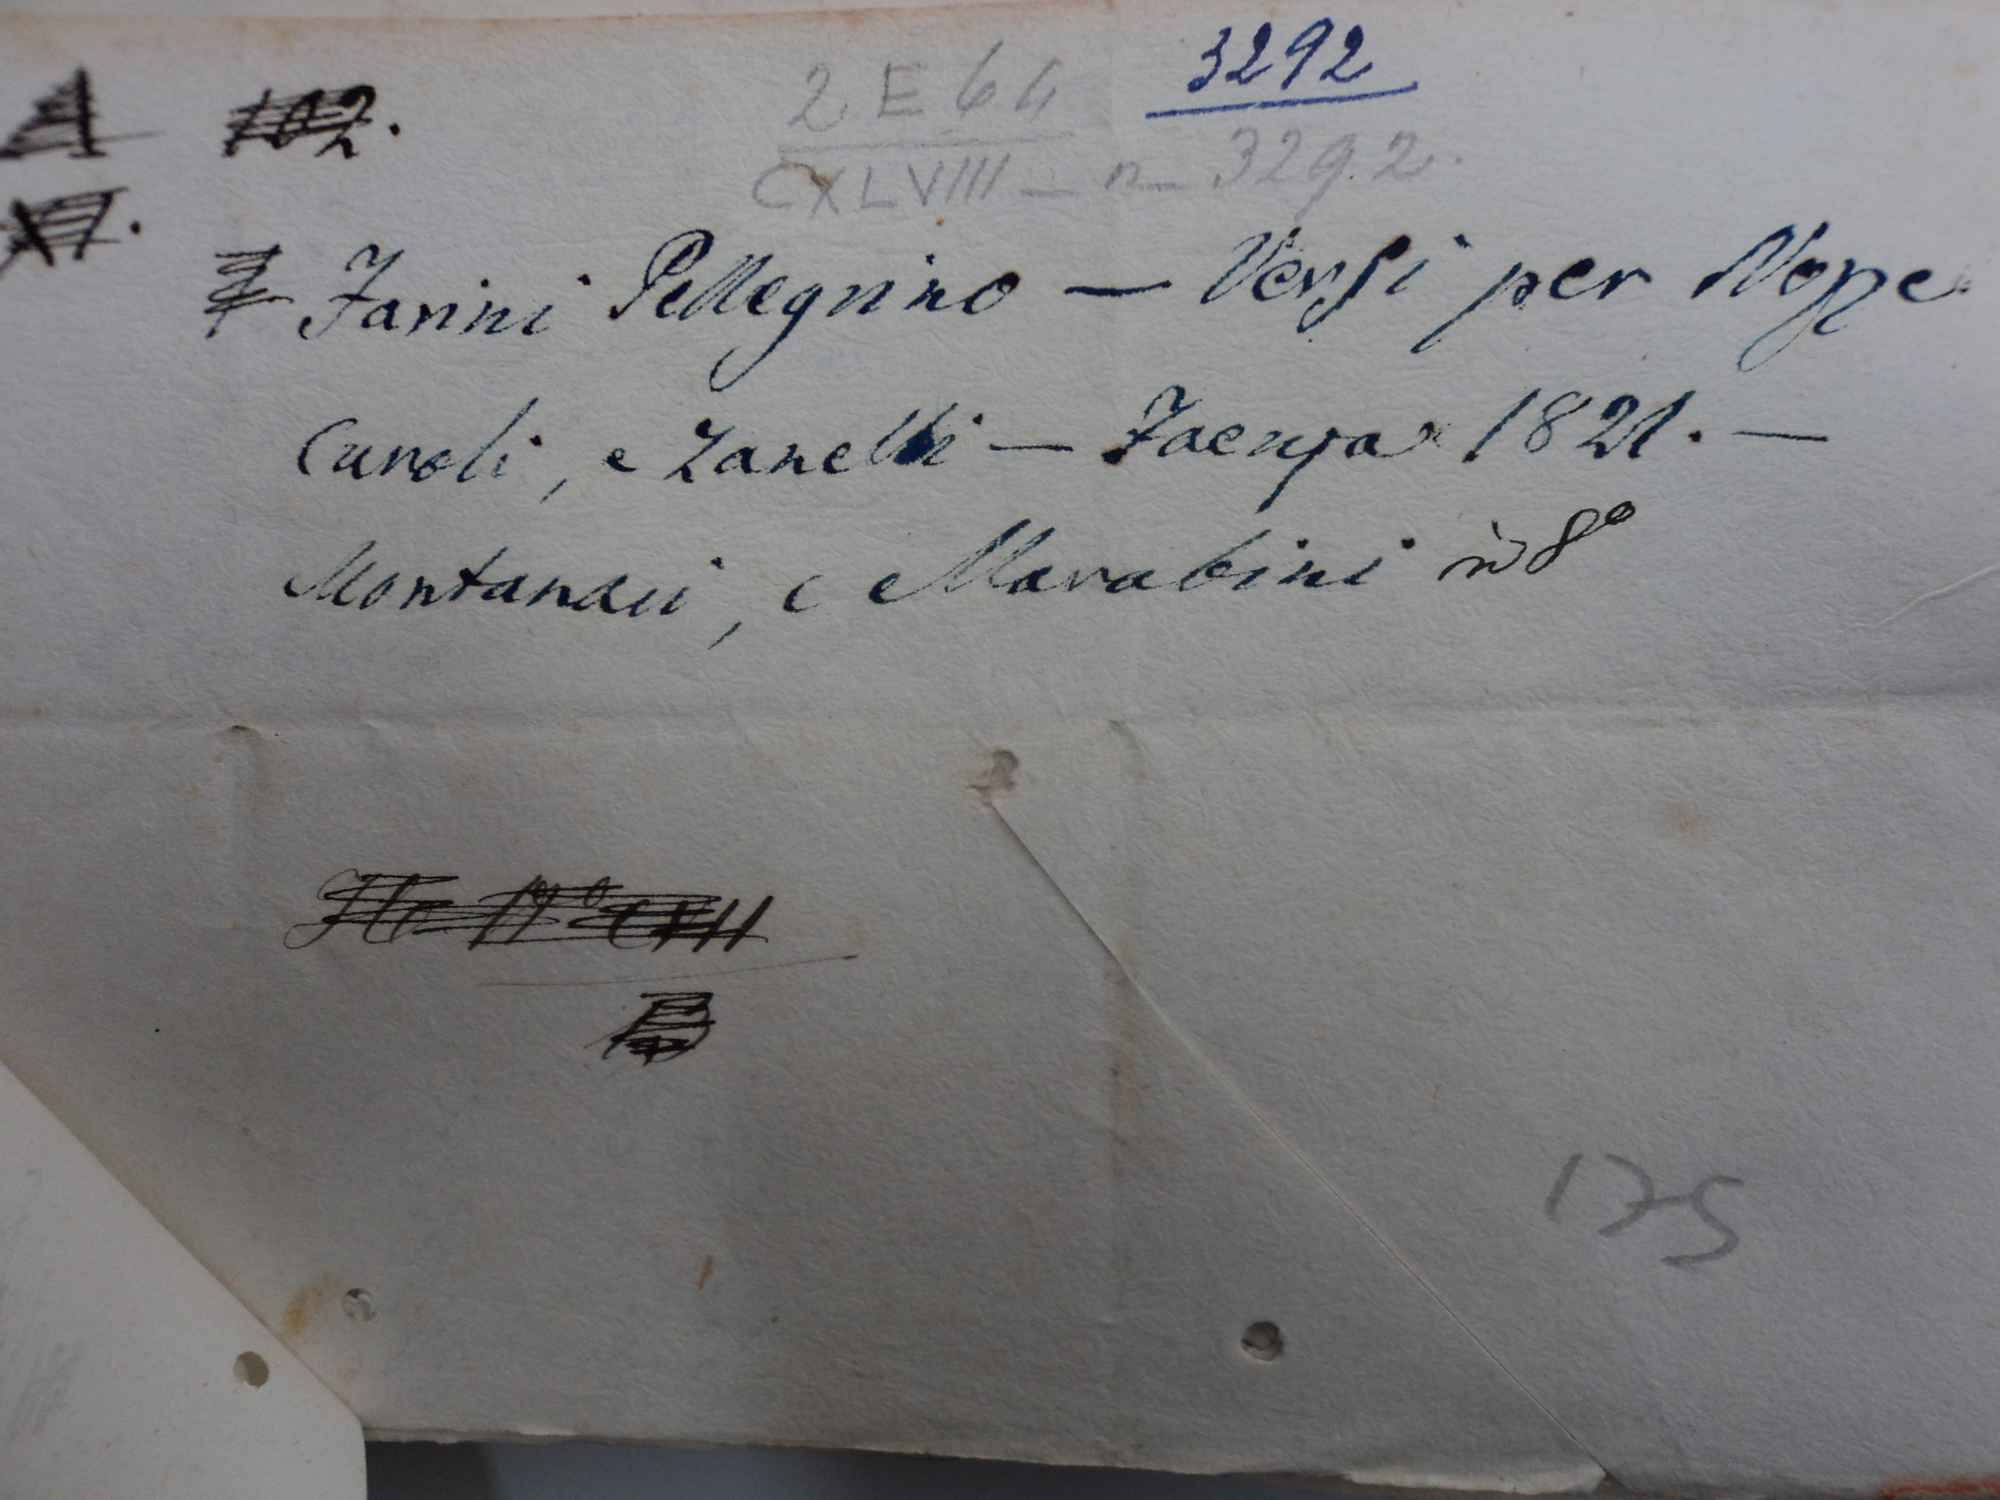 3292
2 E 64
A 102.
CXLVIII - n 3292.
XI.
Farini Pellegrino — Versi per Nozze
Curoli, e Zanelli — Faenza 1821. —
Montanari, e Marabini in 8º
B
175